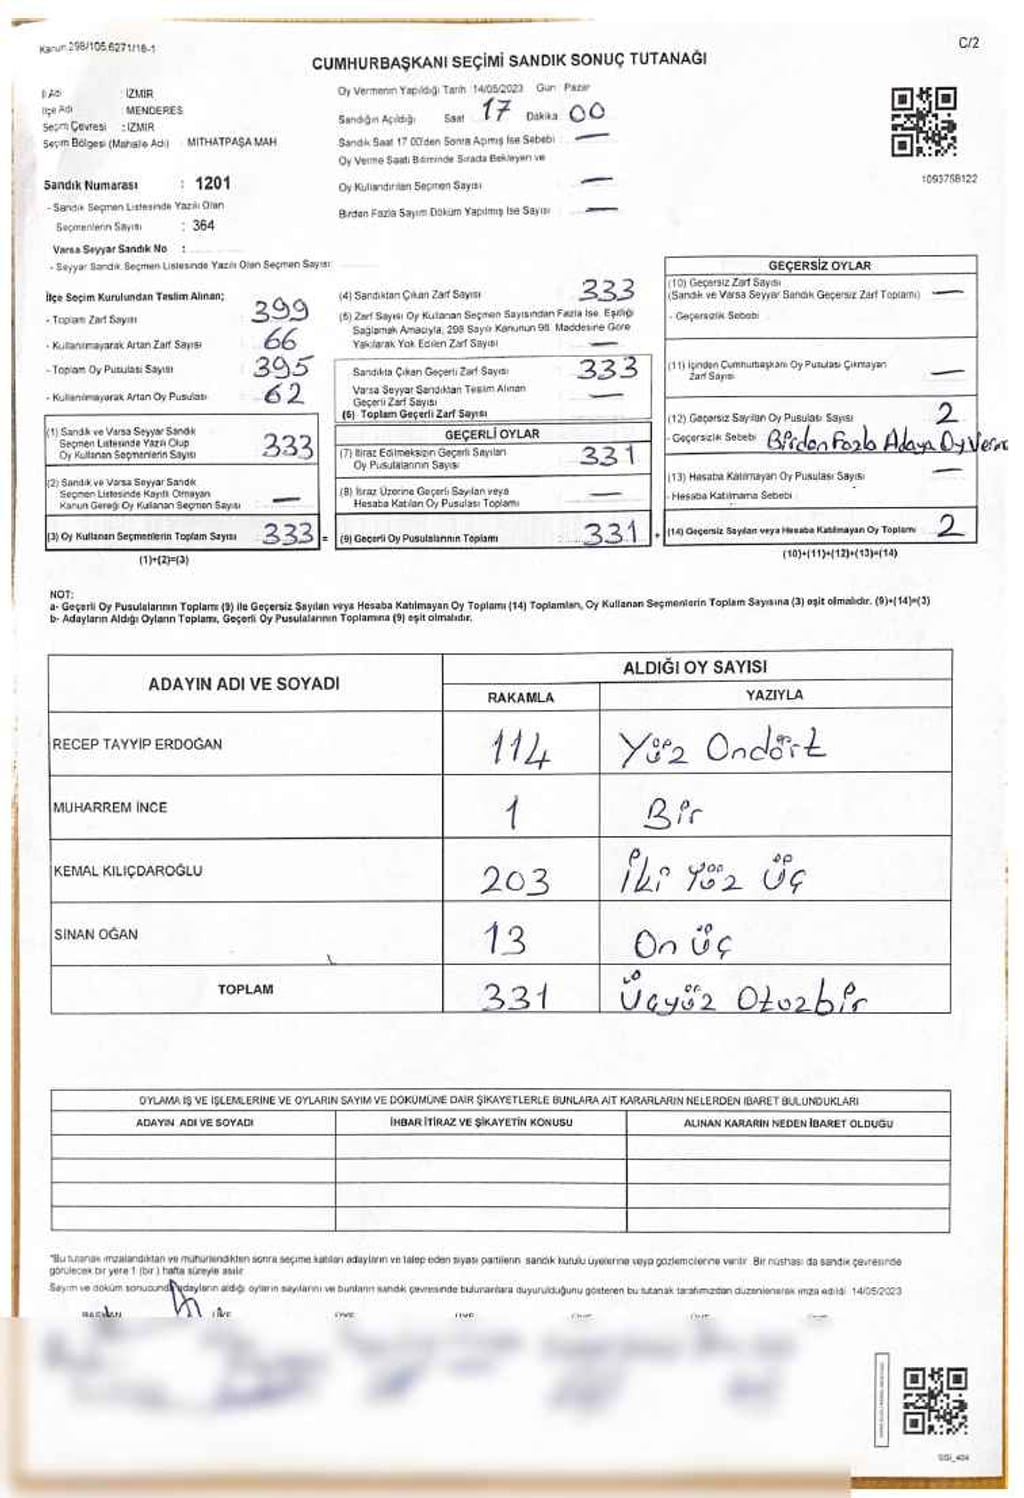 Kanun 298/105,6271/18-1
C/2
CUMHURBAŞKANI SEÇİMİ SANDIK SONUÇ TUTANAĞI
İl Adı : İZMİR
İlçe Adı : MENDERES
Seçim Çevresi : İZMİR
Seçim Bölgesi (Mahalle Adı) : MİTHATPAŞA MAH
Sandık Numarası : 1201
- Sandık Seçmen Listesinde Yazılı Olan
Seçmenlerin Sayısı : 364
Varsa Seyyar Sandık No :
- Seyyar Sandık Seçmen Listesinde Yazılı Olan Seçmen Sayısı:
Oy Vermenin Yapıldığı Tarih 14/05/2023 Gün Pazar
Sandığın Açıldığı Saat 17 Dakika 00
Sandık Saat 17 00'den Sonra Açmış İse Sebebi : —
Oy Verme Saati Bitiminde Sırada Bekleyen ve
Oy Kullandırılan Seçmen Sayısı —
Birden Fazla Sayım Döküm Yapılmış İse Sayısı —
1093758122
İlçe Seçim Kurulundan Teslim Alınan;
- Toplam Zarf Sayısı 399
- Kullanılmayarak Artan Zarf Sayısı 66
- Toplam Oy Pusulası Sayısı 395
- Kullanılmayarak Artan Oy Pusulası 62
(1) Sandık ve Varsa Seyyar Sandık
Seçmen Listesinde Yazılı Olup
Oy Kullanan Seçmenlerin Sayısı 333
(2) Sandık ve Varsa Seyyar Sandık
Seçmen Listesinde Kayıtlı Olmayan
Kanun Gereği Oy Kullanan Seçmen Sayısı —
(3) Oy Kullanan Seçmenlerin Toplam Sayısı 333 =
(1)+(2)=(3)
(4) Sandıktan Çıkan Zarf Sayısı 333
(5) Zarf Sayısı Oy Kullanan Seçmen Sayısından Fazla İse, Eşitliği
Sağlamak Amacıyla, 298 Sayılı Kanunun 98. Maddesine Göre
Yakılarak Yok Edilen Zarf Sayısı —
Sandıkta Çıkan Geçerli Zarf Sayısı 333
Varsa Seyyar Sandıktan Teslim Alınan
Geçerli Zarf Sayısı —
(6) Toplam Geçerli Zarf Sayısı
GEÇERLİ OYLAR
(7) İtiraz Edilmeksizin Geçerli Sayılan
Oy Pusulalarının Sayısı 331
(8) İtiraz Üzerine Geçerli Sayılan veya
Hesaba Katılan Oy Pusulası Toplamı —
(9) Geçerli Oy Pusulalarının Toplamı 331 +
GEÇERSİZ OYLAR
(10) Geçersiz Zarf Sayısı
(Sandık ve Varsa Seyyar Sandık Geçersiz Zarf Toplamı) —
- Geçersizlik Sebebi
(11) İçinden Cumhurbaşkanı Oy Pusulası Çıkmayan
Zarf Sayısı —
(12) Geçersiz Sayılan Oy Pusulası Sayısı 2
- Geçersizlik Sebebi Birden Fazla Adaya Oy Verme
(13) Hesaba Katılmayan Oy Pusulası Sayısı —
- Hesaba Katılmama Sebebi
(14) Geçersiz Sayılan veya Hesaba Katılmayan Oy Toplamı 2
(10)+(11)+(12)+(13)=(14)
NOT:
a- Geçerli Oy Pusulalarının Toplamı (9) ile Geçersiz Sayılan veya Hesaba Katılmayan Oy Toplamı (14) Toplamları, Oy Kullanan Seçmenlerin Toplam Sayısına (3) eşit olmalıdır. (9)+(14)=(3)
b- Adayların Aldığı Oyların Toplamı, Geçerli Oy Pusulalarının Toplamına (9) eşit olmalıdır.
ADAYIN ADI VE SOYADI
ALDIĞI OY SAYISI
RAKAMLA YAZIYLA
RECEP TAYYİP ERDOĞAN 114 Yüz Ondört
MUHARREM İNCE 1 Bir
KEMAL KILIÇDAROĞLU 203 İki Yüz Üç
SİNAN OĞAN 13 On Üç
TOPLAM 331 Üçyüz Otuzbir
OYLAMA İŞ VE İŞLEMLERİNE VE OYLARIN SAYIM VE DÖKÜMÜNE DAİR ŞİKAYETLERLE BUNLARA AİT KARARLARIN NELERDEN İBARET BULUNDUKLARI
ADAYIN ADI VE SOYADI İHBAR İTİRAZ VE ŞİKAYETİN KONUSU ALINAN KARARIN NEDEN İBARET OLDUĞU
"Bu tutanak imzalandıktan ve mühürlendikten sonra seçime katılan adayların ve talep eden siyasi partilerin sandık kurulu üyelerine veya gözlemcilerine verilir. Bir nüshası da sandık çevresinde
görülecek bir yere 1 (bir) hafta süreyle asılır.
Sayım ve döküm sonucunda adayların aldığı oyların sayılarını ve bunların sandık çevresinde bulunanlara duyurulduğunu gösteren bu tutanak tarafımızdan düzenlenerek imza edildi. 14/05/2023
BAŞKAN ÜYE ÜYE ÜYE ÜYE ÜYE ÜYE